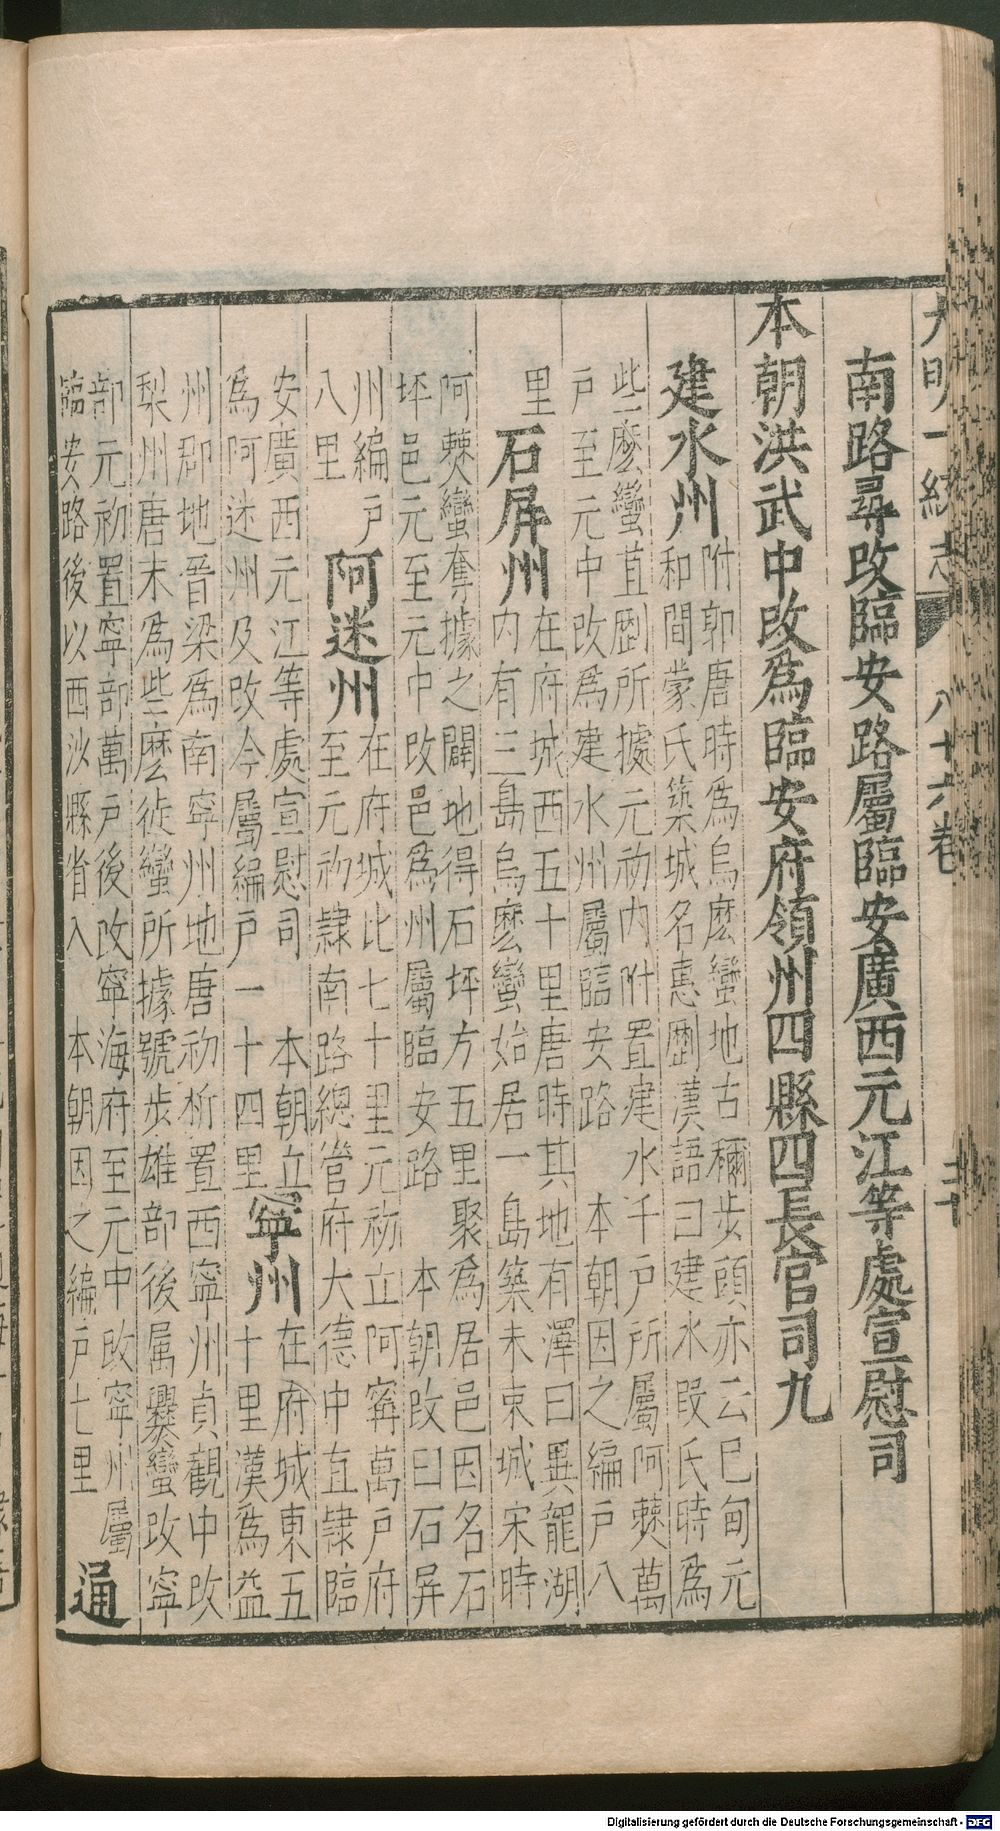 大明一統志 八十六卷 三十
南路尋改臨安路屬臨安廣西元江等處宣慰司
本朝洪武中改為臨安府領州四縣四長官司九
建水州
附郭唐時為烏麽蠻地古稱步頭亦云巴甸元
和間蒙氏築城名惠𠠝漢語曰建水段氏時為
些麽蠻苴𠠝所據元初內附置建水千戶所屬阿僰萬
戶至元中改為建水州屬臨安路 本朝因之編戶八
里
石屏州
在府城西五十里唐時其地有澤曰異龍湖
內有三島烏麽蠻始居一島築末束城宋時
阿僰蠻奪據之闢地得石坪方五里聚為居邑因名石
坪邑元至元中改邑為州屬臨安路 本朝改曰石屏
州編戶
八里
阿迷州
在府城北七十里元初立阿寗萬戶府
至元初隸南路總管府大德中直隸臨
安廣西元江等處宣慰司 本朝立
為阿迷州及改今屬編戶一十四里
寧州
在府城東五
十里漢為益
州郡地晉梁為南寧州地唐初析置西寧州貞觀中改
梨州唐末為些麽徙蠻所據號步雄部後属爨蠻改寧
部元初置寧部萬戶後改寧海府至元中改寧州屬
臨安路後以西沙縣省入 本朝因之編戶七里
通
Digitalisierung gefördert durch die Deutsche Forschungsgemeinschaft - DFG